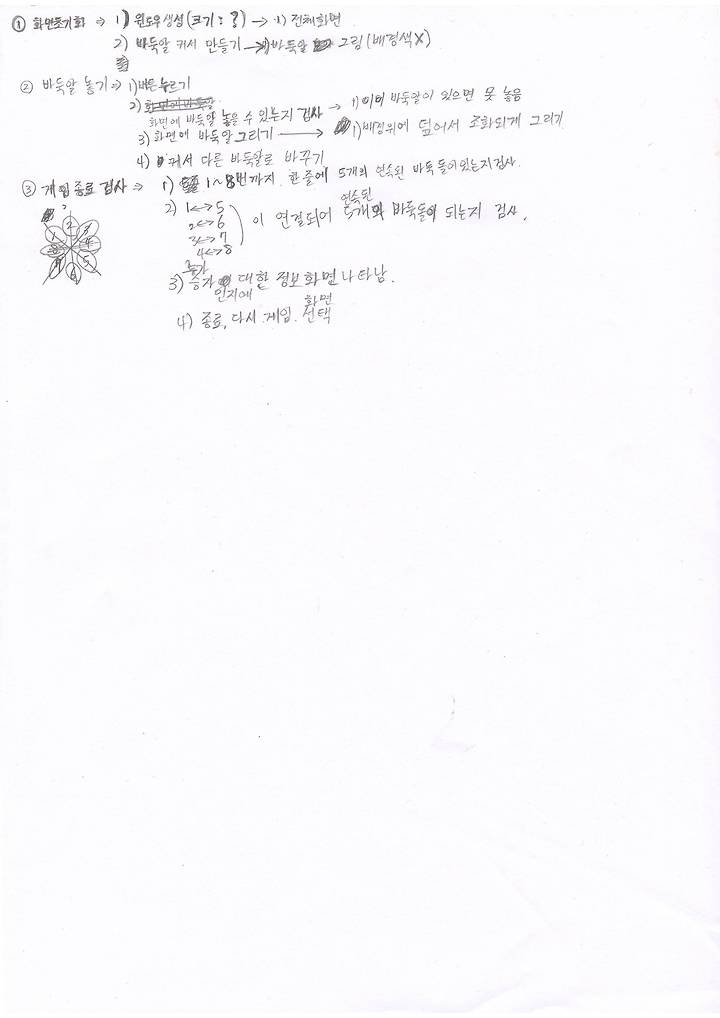 ① 화면초기화 ⇒ 1) 윈도우생성(크기:?) → 1) 전체화면
2) 바둑알 커서 만들기 → 1) 바둑알 그림(배경색X)
② 바둑알 놓기 ⇒ 1) 버튼누르기
2) 화면에 바둑알
화면에 바둑알 놓을 수 있는지 검사 → 1) 이미 바둑알이 있으면 못 놓음
3) 화면에 바둑알그리기 → 1) 배경위에 덮어서 조화되게 그리기
4) 커서 다른 바둑알로 바꾸기
③ 게임종료 검사 ⇒ 1) 1~8번까지. 한줄에 5개의 연속된 바둑돌이있는지검사.
2) 1↔5
2↔6
3↔7
4↔8
이 연결되어 연속된 5개의 바둑돌이 되는지 검사.
1 2 3
8 4
7 6 5
3) 승자 대한 정보화면나타남.
인지에
4) 종료, 다시 게임. 선택
화면